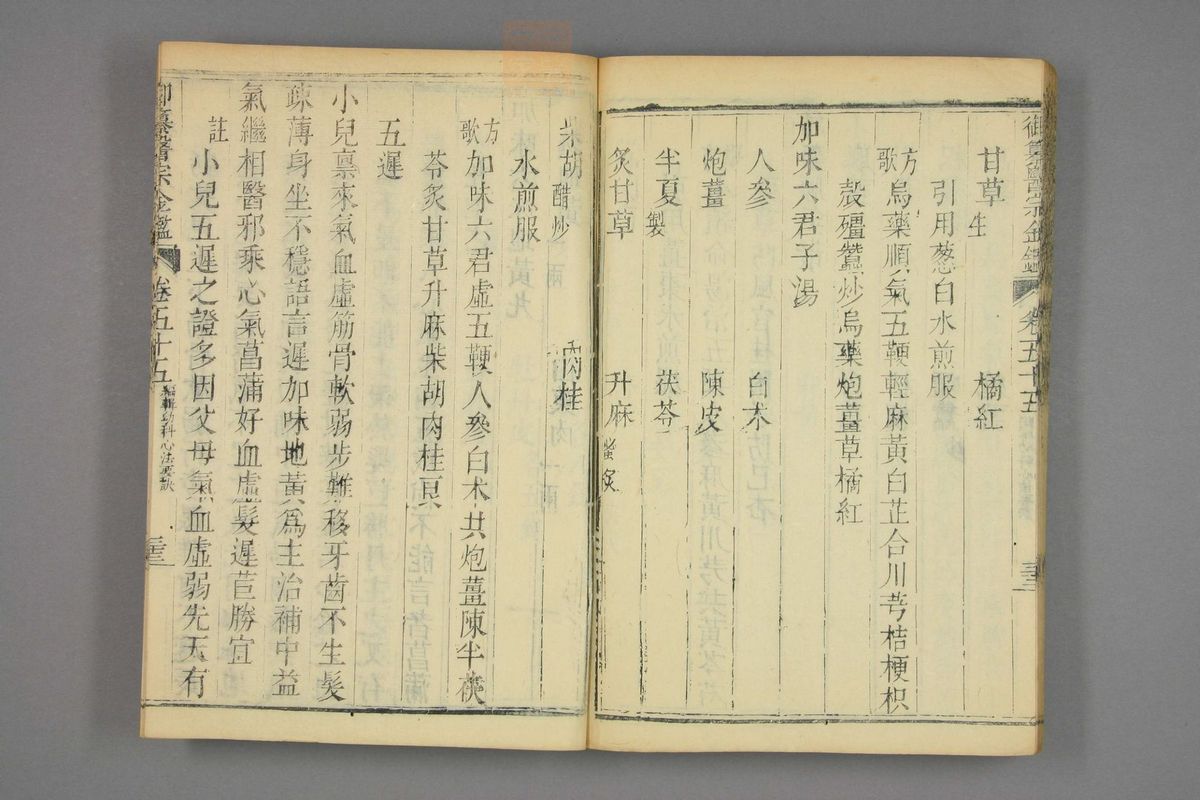 御纂醫宗金鑑 卷五十五 三三
甘草生 橘紅
引用葱白水煎服
方歌 烏藥順氣五鞕輕麻黃白芷合川芎桔梗枳
殼殭蠶炒烏藥炮薑草橘紅
加味六君子湯
人參 白朮
炮薑 陳皮
半夏製 茯苓
炙甘草 升麻蜜炙
柴胡醋炒 肉桂
水煎服
方歌 加味六君虛五鞕人參白朮共炮薑陳半茯
苓炙甘草升麻柴胡肉桂
五遲
小兒稟來氣血虛筋骨軟弱步難移牙齒不生髮
疎薄身坐不穩語言遲加味地黃爲主治補中益
氣繼相醫邪乘心氣菖蒲好血虛髮遲苣勝宜
註 小兒五遲之證多因父母氣血虛弱先天有
御纂醫宗金鑑 卷五十五 編輯幼科心法要訣 三三